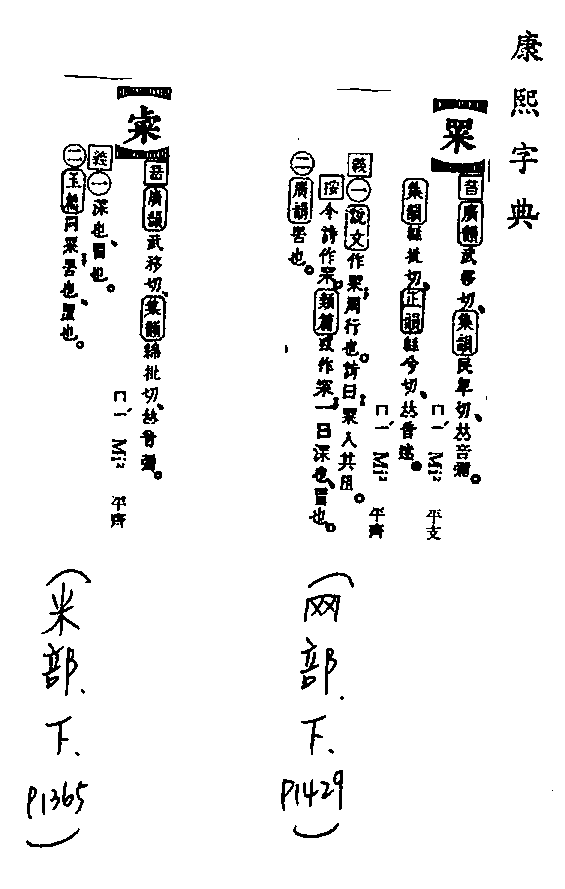 康熙字典
【罙】
音廣韻武移切、集韻民卑切、𠀤音彌。
ㄇㄧˊ Mi² 平支
集韻緜批切、正韻緜兮切、𠀤音迷。
ㄇㄧˊ Mi² 平齊
義㊀說文作罙、周行也。詩曰、罙入其阻。
按今詩作冞。類篇或作冞、一曰深也、冒也。
㊁廣韻罟也。
(网部、下、P1429)
【冞】
音廣韻武移切、集韻緜批切、𠀤音彌。
ㄇㄧˊ Mi² 平齊
義㊀深也、冒也。
㊁玉篇同罙、罟也、置也。
(米部、下、P1365)